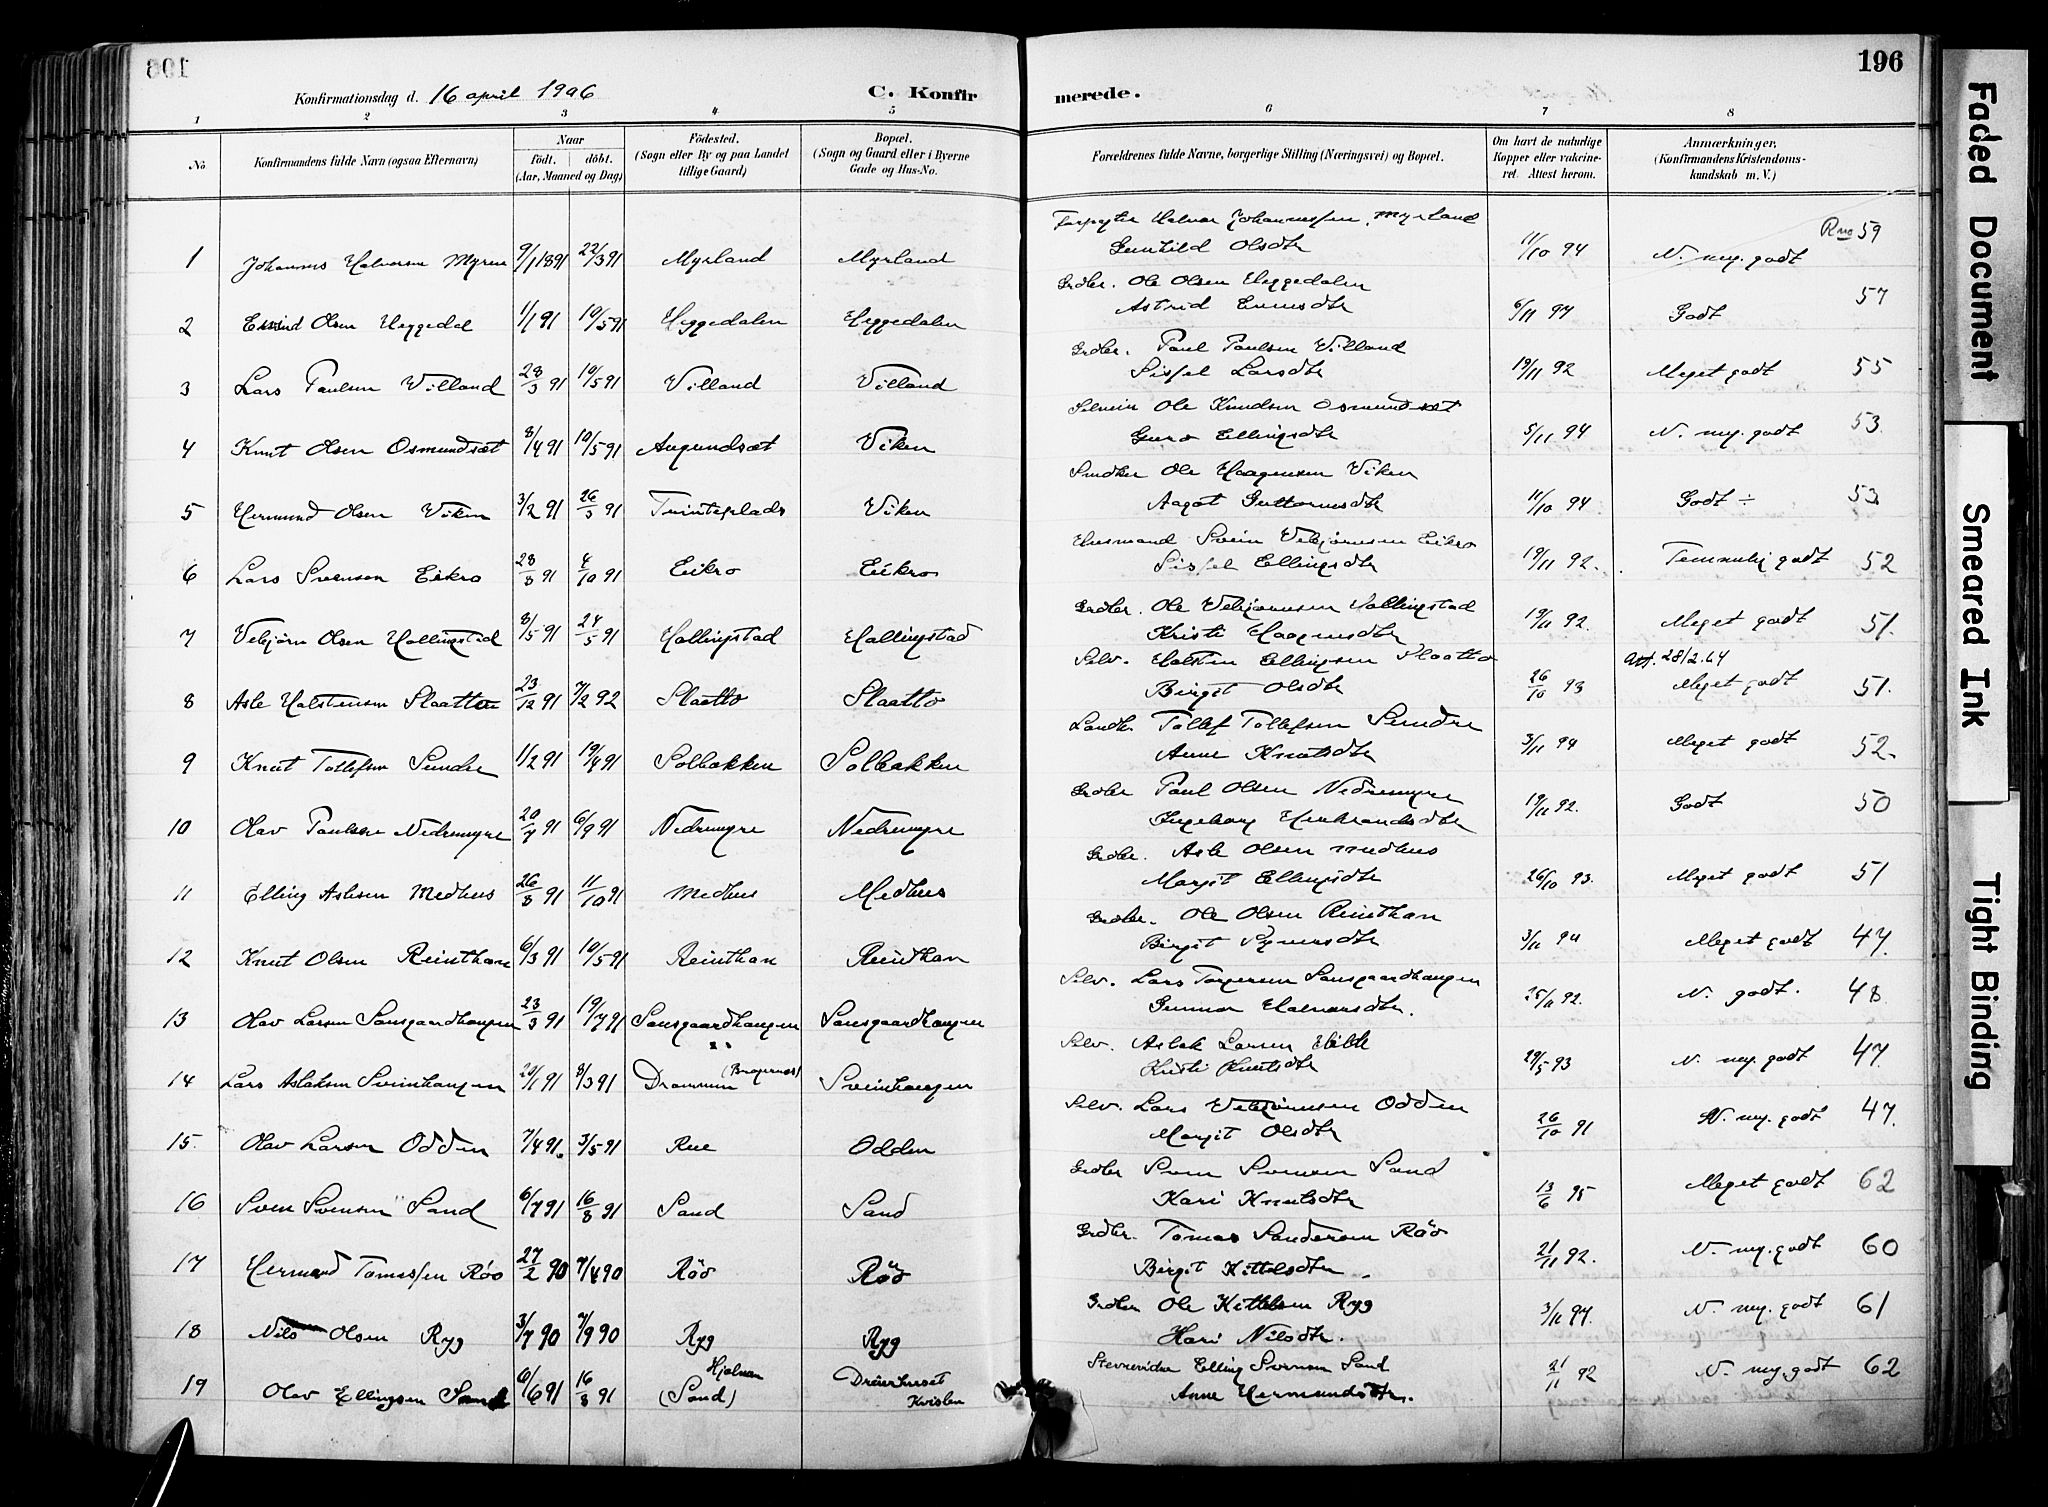 196
Konfirmationsdag d. 16 april 1906
C. Konfirmerede.
1 2 3 4 5 6 7 8
No
Konfirmandens fulde Navn (ogsaa Efternavn)
Naar
födt. döbt.
(Aar, Maaned og Dag)
Födested.
(Sogn eller By og paa Landet
tillige Gaard)
Bopæl.
(Sogn og Gaard eller i Byerne
Gade og Hus-No.
Forældrenes fulde Navne, borgerlige Stilling (Næringsvei) og Bopæl.
Om havt de naturlige
Kopper eller vakcine-
ret. Attest herom.
Anmærkninger,
(Konfirmandens Kristendoms-
kundskab m. V.)
1 Johannes Halvorsen Myren 9/1 1891 22/3 91 Myrland Myrland Halvor Johannessen Myrland
Gunhild Olsdtr 11/10 94 N. meg. godt 59
2 Eivind Olsen Heggedal 1/1 91 10/5 91 Heggedalen Heggedalen Grdbr. Ole Olsen Heggedalen
Astrid 6/11 94 Godt 57
3 Lars Paulsen Villand 28/3 91 10/5 91 Villand Villand Grdbr. Paul Paulsen Villand
Sissel Larsdtr 19/11 92 Meget godt 55
4 Knut Olsen Osmundsæt 8/4 91 10/5 91 Augundsæt Viken Selveier Ole Knudsen Osmundsæt
Guro Ellingsdtr 5/11 94 N. my. godt 53.
5 Hermund Olsen Viken 3/2 91 26/3 91 Viken Ole Haagensen Viken
Aagot Guttormsdtr 11/10 94. Godt ÷ 53
6 Lars Svensson Eikro 28/8 91 4/10 91 Eikro Eikro Husmand Svein Vebjørnsen Eikro
Sissel Ellingsdtr 19/11 92. Temmelig godt 52
7 Vebjörn Olsen Hallingstad 8/5 91 24/5 91 Hallingstad Hallingstad Grdbr. Ole Vebjørnsen Hallingstad
Kristi Haagensdtr 19/11 92. Meget godt 51.
8 Asle Halstensen Slaatten 23/12 91 7/2 92 Slaatto Slaatto Selv. Halsten Ellingsen Slaatto
Birgit Olsdtr 26/10 93 28/2.64
Meget godt 51.
9 Knut Tollefsen Sundre 1/2 91 19/4 91 Solbakken Solbakken Landh. Tollef Tollefsen Sundre
Anne Knutsdtr 3/11 94 Meget godt 52.
10 Olav Paulsen Nedremyre 20/7 91 6/9 91 Nedremyre Nedremyre Grdbr Paul Olsen Nedremyre
Ingeborg Hembrandsdtr 19/11 92. Godt 50
11 Elling Aslesen Medhus 26/8 91 11/10 91 Medhus Medhus Grdbr. Asle Olsen Medhus
Margit Ellingsdtr 26/10 93. Meget godt 51
12 Knut Olsen Reinthan 6/3 91 10/5 91 Reinthan Reinthan Grdbr. Ole Olsen Reinthan
Birgit 3/11 94 Meget godt 47.
13 Olav Larsen Sansgaardhaugen 23/3 91 19/7 91 Sansgaardhaugen Sansgaardhaugen Selv. Lars Torgersen Sansgaardhaugen
Gunnor Halvorsdtr. 25/11 92. N. godt. 48
14 Lars Aslaksen Sveinhaugen 20/1 91 8/3 91 Drammen (Bragernes) Sveinhaugen Selv. Aslak Larsen
Kristi Knutsdtr 29/5 93 N. my. godt 47.
15. Olav Larsen Odden 7/4 91. 3/5 91 Rue Odden Selv. Lars Vebjørnsen Odden
Margit Olsdtr 26/10 91 N. my. godt 47.
16 Sven Svensen Sand 6/7 91 16/8 91 Sand Sand Grdbr Sven Svensen Sand
Kari Knutsdtr 13/6 95 Meget godt 62
17 Hermund Tomassen Röo 27/2 90 7/4 90 Röo Röo Grdbr. Tomas Sandersen Röo
Birgit Kittelsdtr. 21/11 92. N. my. godt 60
18 Nils Olsen Ryg 3/7 90 7/9 90 Ryg Ryg Grdbr Ole Kittelsen Ryg
Kari Nilsdtr. 3/11 94. N. my. godt 61
19 Olav Ellingsen Sand 6/6 91 16/8 91 (Sand) Kvislen Elling Svensen Sand
Anne Hermundsdtr. 21/11 92 N. my. godt 62
Faded Document
Smeared Ink
Tight Binding